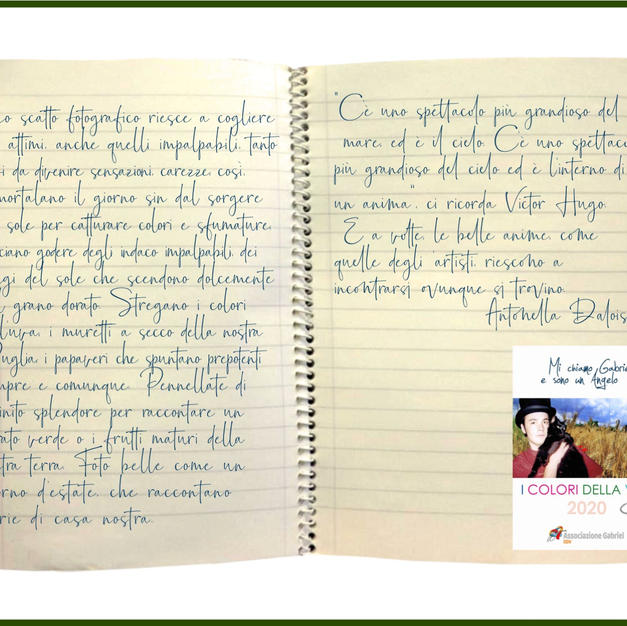 co scatto fotografico riesce a cogliere
attimi, anche quelli impalpabili, tanto
i da divenire sensazioni, carezze, così,
mortalano il giorno sin dal sorgere
sole per catturare colori e sfumature,
ciano godere degli indaco impalpabili, dei
gi del sole che scendono dolcemente
grano dorato. Stregano i colori
luva, i muretti a secco della nostra
uglia, i papaveri che spuntano prepotenti
mpre e comunque. Pennellate di
inito splendore per raccontare un
ato verde o i frutti maturi della
tra terra. Foto belle come un
orno d'estate, che raccontano
rie di casa nostra.
"C'è uno spettacolo più grandioso del
mare, ed è il cielo. C'è uno spettaco
più grandioso del cielo ed è l'interno di
un anima", ci ricorda Victor Hugo.
E a volte, le belle anime, come
quelle degli artisti, riescono a
incontrarsi ovunque si trovino.
Antonella Dalois
Mi chiamo Gabrie
e sono un Angelo
I COLORI DELLA V
2020
Associazione Gabriel